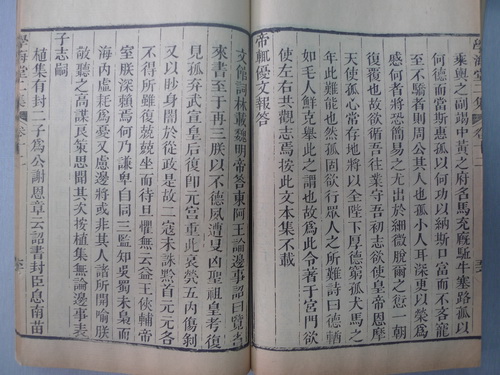 學海堂二集
卷二
乘輿之副竭中黃之府名馬充廄驅牛塞路孤以
何德而當斯惠孤以何功以納斯貺富而不吝寵
至不驕者則周公其人也孤小人耳深更以榮爲
慼何者將恐簡易之尤出於細微脫爾之愆一朝
復露也故欲循吾往業守吾初志欲使皇帝恩摩
天使孤心常存地將以全陛下厚德究孤犬馬之
年此難能也然孤固欲行眾人之所難詩曰德輶
如毛人鮮克舉此之謂也故爲此令著于宮門欲
使左右共觀志焉按此文本集不載
帝輒優文報答
文館詞林載魏明帝答東阿王論邊事詔曰覽省
來書至于再三朕以不德夙遭旻凶聖祖皇考復
見孤弃武宣皇后復卽元宮重此哀煢五內傷剝
又以眇身闇於從政是故二寇未誅黔首元元各
不得所雖復兢兢坐而待旦懼無云益王俠輔帝
室朕深賴焉何乃謙卑自同三監知吳蜀未梟而
海內虛耗爲憂又慮邊將或非其人諸所開喻朕
敬聽之高謀良策思聞其次按植集無論邊事表
子志嗣
植集有封二子爲公謝恩章云詔書封臣息男苗
學海堂二集
卷二